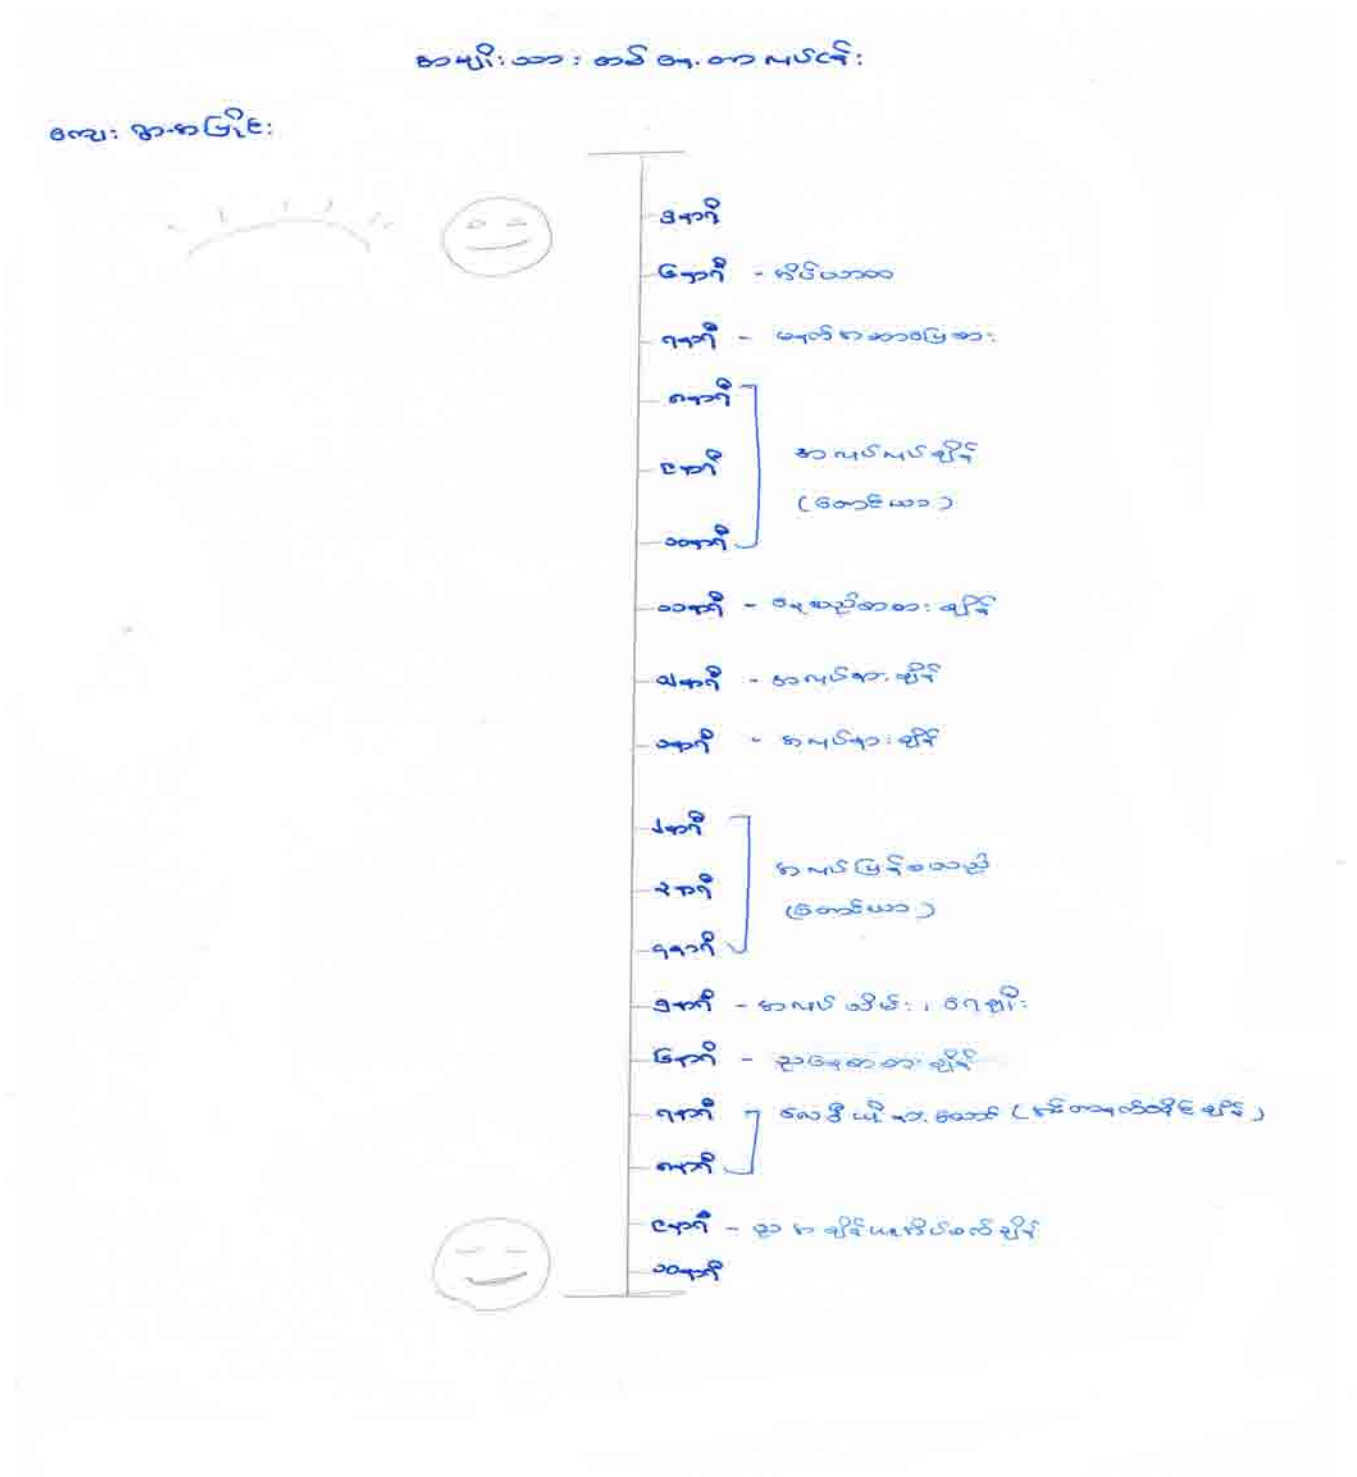 အမျိုးသား တစ်နေ့တာ လုပ်ငန်း
ကျေးရွာအပြိုင်း
၅နာရီ
၆နာရီ - အိပ်ယာထ
၇နာရီ - မနက်စာဆာပြေစား
၈နာရီ
၉နာရီ
အလုပ်လုပ်ချိန်
(တောင်ယာ)
၁၀နာရီ
၁၁နာရီ - နေ့လည်စာစားချိန်
၁၂နာရီ - အလုပ်နားချိန်
၁နာရီ - အလုပ်နားချိန်
၂နာရီ
၃နာရီ
အလုပ်ပြန်စသည်
(တောင်ယာ)
၄နာရီ
၅နာရီ - အလုပ်သိမ်း၊ ရေချိုး
၆နာရီ - ညနေစာစားချိန်
၇နာရီ ရေဒီယိုနားထောင်
၈နာရီ
၉နာရီ - ညအချိန်ယူအိပ်စက်ချိန်
၁၀နာရီ